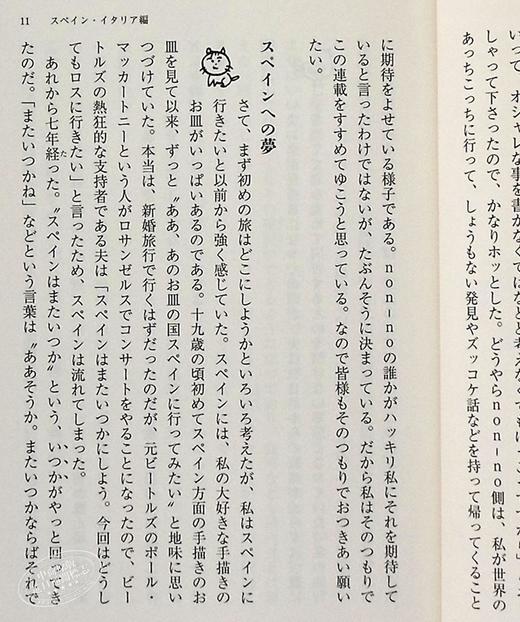 いって、オシャレな事を書かなくてはなどと考えなくて
しゃって下さったので、かなりホッとした。どうやらnon-no側は、私が世界の
あっちこっちに行って、しょうもない発見やズッコケ話などを持って帰ってくること
11 スペイン・イタリア編
に期待をよせている様子である。non-noの誰かがハッキリ私にそれを期待して
いると言ったわけではないが、たぶんそうに決まっている。だから私はそのつもりで
この連載をすすめてゆこうと思っている。なので皆様もそのつもりでおつきあい願い
たい。
スペインへの夢
さて、まず初めの旅はどこにしようかといろいろ考えたが、私はスペインに
行きたいと以前から強く感じていた。スペインには、私の大好きな手描きの
お皿がいっぱいあるのである。十九歳の頃初めてスペイン方面の手描きのお
皿を見て以来、ずっと〝ああ、あのお皿の国スペインに行ってみたい〟と地味に思い
つづけていた。本当は、新婚旅行で行くはずだったのだが、元ビートルズのポール・
マッカートニーという人がロサンゼルスでコンサートをやることになったので、ビー
トルズの熱狂的な支持者である夫は「スペインはまたいつかにしよう。今回はどうし
てもロスに行きたい」と言ったため、スペインは流れてしまった。
あれから七年経った。〝スペインはまたいつか〟という、いつかがやっと回ってき
たのだ。「またいつかね」などという言葉は〝ああそうか。またいつかならばそれで